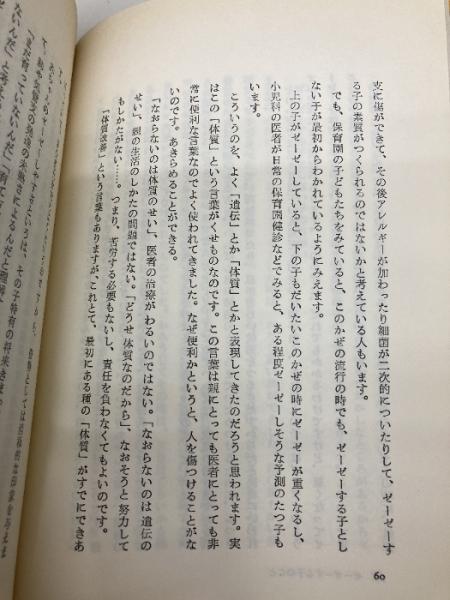 支に傷ができて、その後アレルギーが加わったり細菌が二次的についたりして、ゼーゼーす
る子の素質がつくられるのではないかと考えている人もいます。
でも、保育園の子どもたちをみていると、このかぜの流行の時でも、ゼーゼーする子とし
ない子が最初からわかれているようにみえます。
上の子がゼーゼーしていると、下の子もだいたいこのかぜの時にゼーゼーが重くなるし、
小児科の医者が日常の保育園健診などでみると、ある程度ゼーゼーしそうな予測のたつ子も
います。
こういうのを、よく「遺伝」とか「体質」とかと表現してきたのだろうと思われます。実
はこの「体質」という言葉がくせものなのです。この言葉は親にとっても医者にとっても非
常に便利な言葉なのでよく使われてきました。なぜ便利かというと、人を傷つけることがな
いのです。あきらめることができる。
「なおらないのは体質のせい」、医者の治療がわるいのではない。「なおらないのは遺伝の
せい」、親の生活のしかたの問題ではない。「どうせ体質なのだから」、なおそうと努力して
もしかたがない……。つまり、苦労する必要もないし、責任を負わなくてもよいのです。
「体質改善」という言葉もありますが、これとて、最初にある種の「体質」がすでにできあ
60